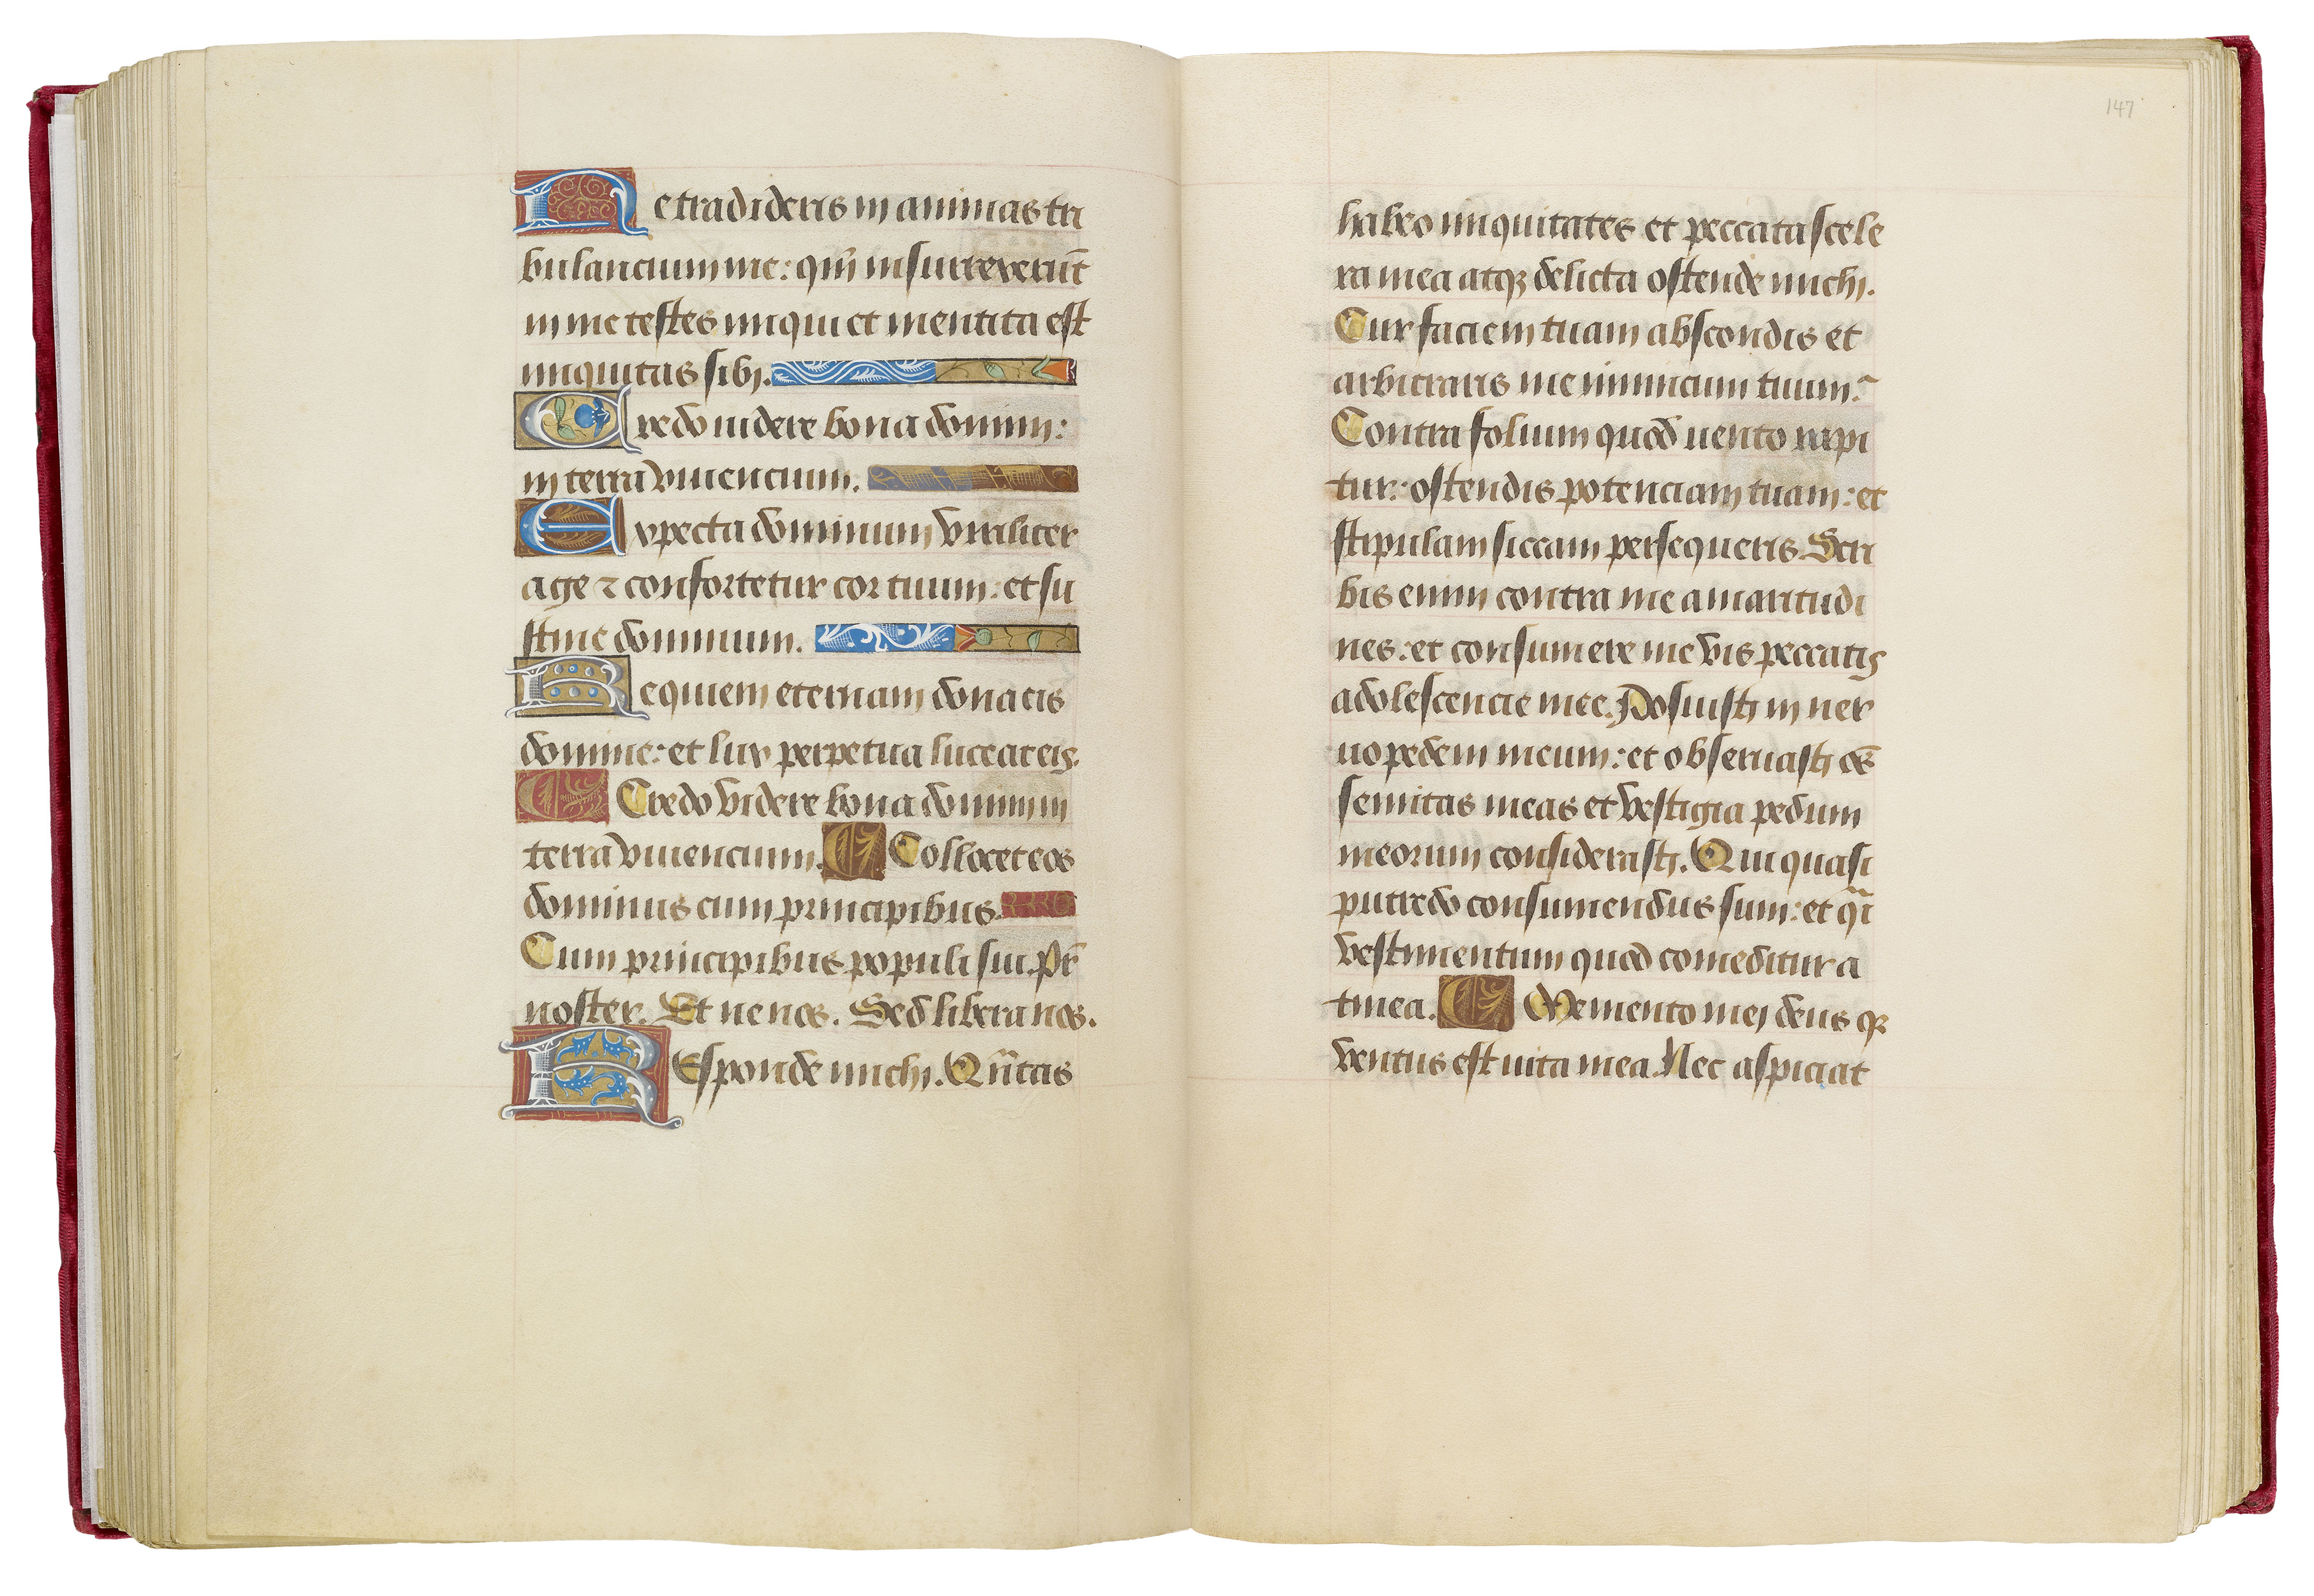 Ne tradideris in animas tri
bulancium me: qm̄ insurrexerūt
in me testes iniqui et mentita est
iniquitas sibj.
Credo uidere bona domini:
in terra viuencium.
Expecta dominum viriliter
age ⁊ confortetur cor tuum: et su
stine dominum.
Requiem eternam dona eis
domine: et lux perpetua luceat eis.
Credo videre bona domini in
terra viuencium. Collocet eos
dominus cum principibus.
Cum principibus populi sui. Pr̄
noster. Et ne nos. Sed libera nos.
REsponde michj. Qn̄tas
147
habeo iniquitates et peccata scele
ra mea atqꝫ delicta ostende michj.
Cur faciem tuam abscondis et
arbitraris me inimicum tuum?
Contra folium quod uento rapi
tur: ostendis potenciam tuam: et
stipulam siccam persequeris. Scri
bis enim contra me amaritudi
nes: et consumere me vis peccatis
adolescencie mee. Posuistj in ner
uo pedem meum: et obseruastj oēs
semitas meas et vestigia pedum
meorum considerastj. Qui quasi
putredo consumendus sum: et qī
vestimentum quod comeditur a
tinea. Memento mej deus qꝛ
ventus est uita mea. Nec aspiciat